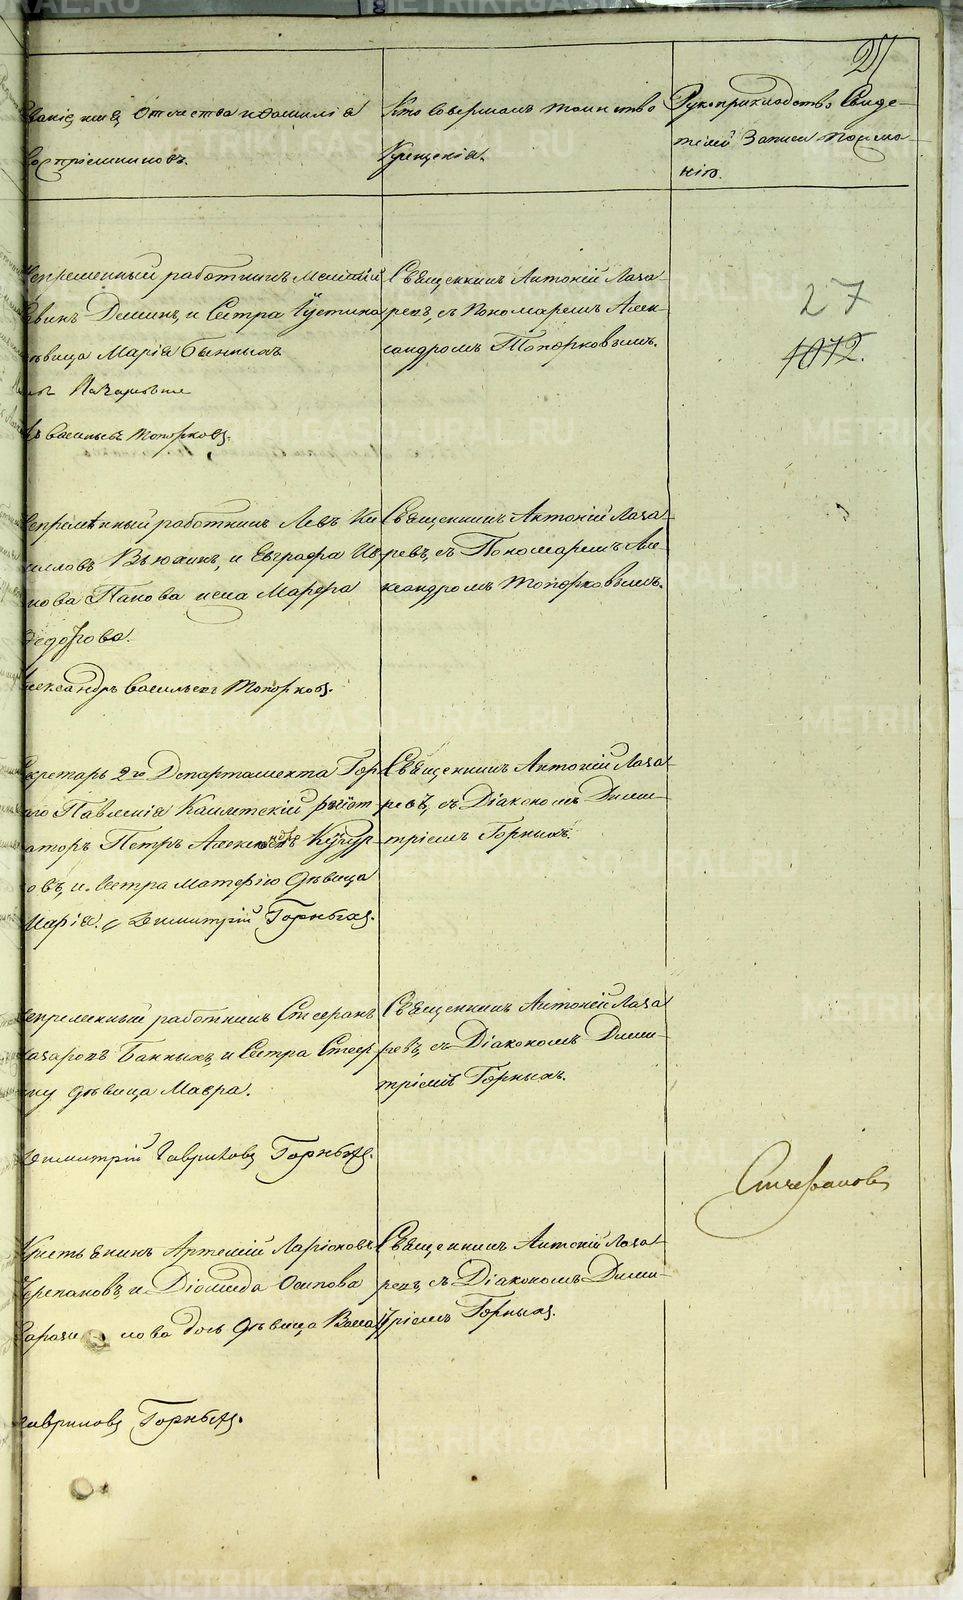 27
Званіе, имя, отчества и фамилія
воспріемниковъ.
Кто совершалъ таинство
Крещенія.
Рукоприкладство Свиде-
телей Записи по жела-
нію.
Непременный работникъ
Деминъ, и Сестра Устина
девица Марія Бынныхъ
Васильевъ Топорковъ.
Священникъ Антоній Лаза-
ревъ, съ Пономаремъ Алек-
сандромъ Топорковымъ.
27
1012.
Непремѣнный работникъ Левъ Ки-
рилловъ Вьюхинъ, и Евграфа Ив
нова Панова жена Марфа
Федорова.
Александръ Васильевъ Топорковъ.
Священникъ Антоній Лаза-
ревъ, съ Пономаремъ Але-
ксандромъ Топорковымъ.
Секретарь 2го Департамента Гор
наго Правленія
Петръ
и Сестра Матерію девица
Марія. Димитрій Горныхъ.
Священникъ Антоній Лаза-
ревъ, съ Діакономъ Дими-
тріемъ Горныхъ.
Непременный работникъ
Лазаревъ и Сестра
девица Мавра.
Димитрій Гавриловъ Горныхъ.
Священникъ Антоній Лаза
ревъ, съ Діакономъ Дими-
тріемъ Горныхъ.
Степановъ
Крестьянинъ Артемій Ларіоновъ
Черепановъ, и Діомида Осипова
дочь девица
Гавриловъ Горныхъ.
Священникъ Антоній Лаза-
ревъ, съ Діакономъ Дими-
тріемъ Горныхъ.
METRIKI.GASO-URAL.RU